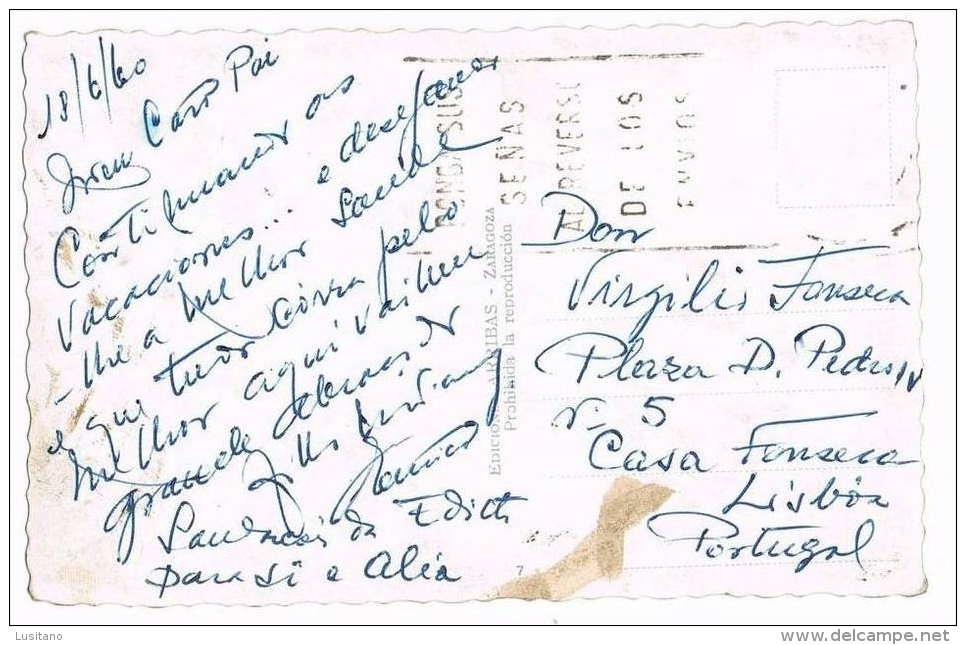 18/6/60
Caro Pai
Continuando as
vacaciones... e desejando
-lhe a melhor saúde
e que tudo corra pelo
melhor aqui vai um
grande abraço do
Saudades da Edith
para si e Alia
PONGA SUS
SEÑAS
AL REVERSO
DE LOS
ENVIOS
EDICIONES ARRIBAS - ZARAGOZA
Prohibida la reproducción
7
Don
Virgilio Fonseca
Plaza D. Pedro IV
nº 5
Casa Fonseca
Lisbôa
Portugal
Lusitano
www.delcampe.net